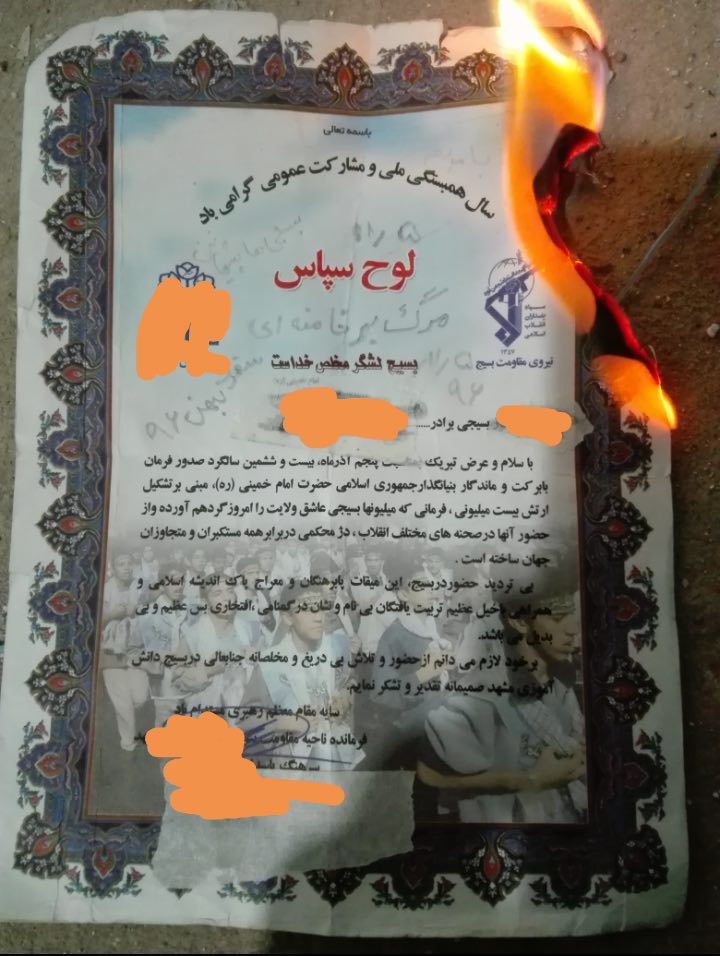 باسمه تعالی
سال همبستگی ملی و مشارکت عمومی گرامی باد
۵ راه
لوح سپاس
مرگ بر خامنه ای
سپاه
پاسداران
انقلاب
اسلامی
۱۳۵۷
نیروی مقاومت بسیج
بسیج لشگر مخلص خداست
امام خمینی (ره)
۹۶
بهمن ۹۶
بسیجی برادر.....
با سلام و عرض تبریک بمناسبت پنجم آذرماه، بیست و ششمین سالگرد صدور فرمان
بابرکت و ماندگار بنیانگذارجمهوری اسلامی حضرت امام خمینی (ره)، مبنی برتشکیل
ارتش بیست میلیونی ، فرمانی که میلیونها بسیجی عاشق ولایت را امروزگردهم آورده واز
حضور آنها درصحنه های مختلف انقلاب ، دژ محکمی دربرابرهمه مستکبران و متجاوزان
جهان ساخته است .
بی تردید حضوردربسیج، این میقات پابرهنگان و معراج پاک اندیشه اسلامی و
همراهی باخیل عظیم تربیت یافتگان بی نام و نشان در گمنامی ،افتخاری بس عظیم و بی
بدیل می باشد.
برخود لازم می دانم ازحضور و تلاش بی دریغ و مخلصانه جنابعالی دربسیج دانش
آموزی مشهد صمیمانه تقدیر و تشکر نمایم.
سایه مقام معظم رهبری مستدام باد
فرمانده ناحیه مقاومت
سرهنگ